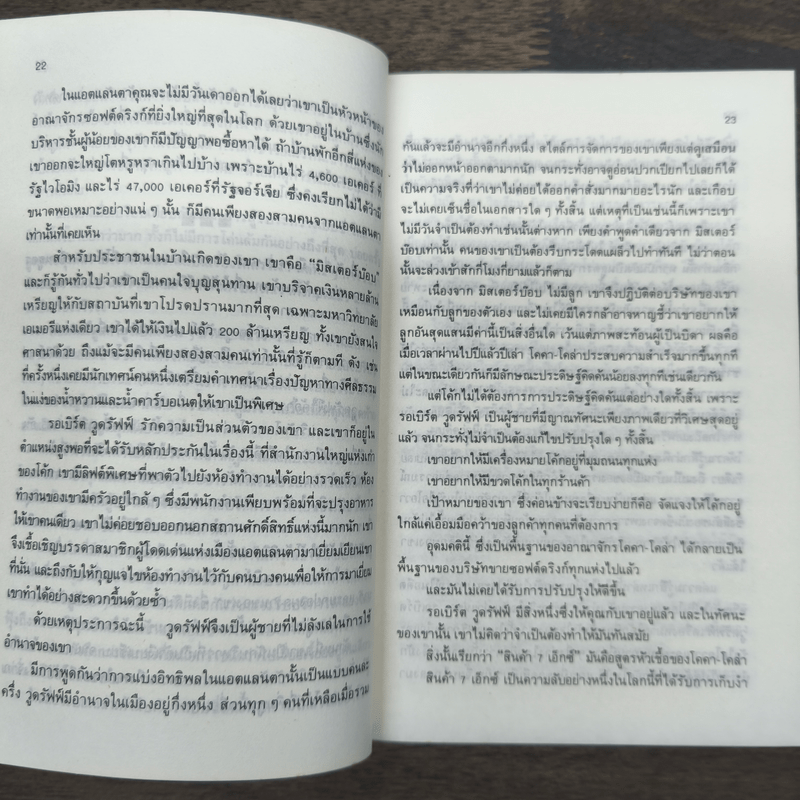 22
ในแอตแลนตาคุณจะไม่มีวันเดาออกได้เลยว่าเขาเป็นหัวหน้าของ
อาณาจักรซอฟต์ดริงก์ที่ยิ่งใหญ่ที่สุดในโลก ด้วยเขาอยู่ในบ้านซึ่งนัก
บริหารชั้นผู้น้อยของเขาก็มีปัญญาพอซื้อหาได้ ถ้าบ้านพักอีกสี่แห่งของ
เขาออกจะใหญ่โตหรูหราเกินไปบ้าง เพราะบ้านไร่ 4,600 เอเคอร์ ที่
รัฐไวโอมิง และไร่ 47,000 เอเคอร์ที่รัฐจอร์เจีย ซึ่งคงเรียกไม่ได้ว่ามี
ขนาดพอเหมาะอย่างแน่ ๆ นั้น ก็มีคนเพียงสองสามคนจากแอตแลนตา
เท่านั้นที่เคยเห็น
สำหรับประชาชนในบ้านเกิดของเขา เขาคือ "มิสเตอร์บ๊อบ"
และก็รู้กันทั่วไปว่าเขาเป็นคนใจบุญสุนทาน เขาบริจาคเงินหลายล้าน
เหรียญให้กับสถาบันที่เขาโปรดปรานมากที่สุด เฉพาะมหาวิทยาลัย
เอเมอรีแห่งเดียว เขาได้ให้เงินไปแล้ว 200 ล้านเหรียญ ทั้งเขายังสนใจ
ศาสนาด้วย ถึงแม้จะมีคนเพียงสองสามคนเท่านั้นที่รู้ก็ตามที ดัง เช่น
ที่ครั้งหนึ่งเคยมีนักเทศน์คนหนึ่งเตรียมคำเทศนาเรื่องปัญหาทางศีลธรรม
ในแง่ของน้ำหวานและน้ำคาร์บอเนตให้เขาเป็นพิเศษ
รอเบิร์ต วูดรัฟฟ์ รักความเป็นส่วนตัวของเขา และเขาก็อยู่ใน
ตำแหน่งสูงพอที่จะได้รับหลักประกันในเรื่องนี้ ที่สำนักงานใหญ่แห่งเก่า
ของโค้ก เขามีลิฟต์พิเศษที่พาตัวไปยังห้องทำงานได้อย่างรวดเร็ว ห้อง
ทำงานของเขามีครัวอยู่ใกล้ ๆ ซึ่งมีพนักงานเพียบพร้อมที่จะปรุงอาหาร
ให้เขาคนเดียว เขาไม่ค่อยชอบออกนอกสถานศักดิ์สิทธิ์แห่งนี้มากนัก เขา
จึงเชื้อเชิญบรรดาสมาชิกผู้โดดเด่นแห่งเมืองแอตแลนตามาเยี่ยมเยียนเขา
ที่นั่น และถึงกับให้กุญแจไขห้องทำงานไว้กับคนบางคนเพื่อให้การมาเยี่ยม
เขาทำได้อย่างสะดวกขึ้นด้วยซ้ำ
ด้วยเหตุประการฉะนี้ วูดรัฟฟ์จึงเป็นผู้ชายที่ไม่ลังเลในการใช้
อำนาจของเขา
มีการพูดกันว่าการแบ่งอิทธิพลในแอตแลนตานั้นเป็นแบบคนละ
ครึ่ง วูดรัฟฟ์มีอำนาจในเมืองอยู่กึ่งหนึ่ง ส่วนทุก ๆ คนที่เหลือเมื่อรวม
23
กันแล้วจะมีอำนาจอีกกึ่งหนึ่ง สไตล์การจัดการของเขาเพียงแต่ดูเสมือน
ว่าไม่ออกหน้าออกตามากนัก จนกระทั่งอาจดูอ่อนปวกเปียกไปเลยก็ได้
เป็นความจริงที่ว่าเขาไม่ค่อยได้ออกคำสั่งมากมายอะไรนัก และเกือบ
จะไม่เคยเซ็นชื่อในเอกสารใด ๆ ทั้งสิ้น แต่เหตุที่เป็นเช่นนี้ก็เพราะเขา
ไม่มีวันจำเป็นต้องทำเช่นนั้นต่างหาก เพียงคำพูดคำเดียวจาก มิสเตอร์
บ๊อบเท่านั้น คนของเขาเป็นต้องรีบกระโดดแผล็วไปทำทันที ไม่ว่าตอน
นั้นจะล่วงเข้าสักกี่โมงกี่ยามแล้วก็ตาม
เนื่องจาก มิสเตอร์บ๊อบ ไม่มีลูก เขาจึงปฏิบัติต่อบริษัทของเขา
เหมือนกับลูกของตัวเอง และไม่เคยมีใครกล้าอาจหาญชี้ว่าเขาอยากให้
ลูกอันสุดแสนมีค่านี้เป็นสิ่งอื่นใด เว้นแต่ภาพสะท้อนผู้เป็นบิดา ผลคือ
เมื่อเวลาผ่านไปปีแล้วปีเล่า โคคา-โคล่าประสบความสำเร็จมากขึ้นทุกที
แต่ในขณะเดียวกันก็มีลักษณะประดิษฐ์คิดค้นน้อยลงทุกทีเช่นเดียวกัน
แต่โค้กไม่ได้ต้องการการประดิษฐ์คิดค้นแต่อย่างใดทั้งสิ้น เพราะ
รอเบิร์ต วูดรัฟฟ์ เป็นผู้ชายที่มีญาณทัศนะเพียงภาพเดียวที่วิเศษสุดอยู่
แล้ว จนกระทั่งไม่จำเป็นต้องแก้ไขปรับปรุงใด ๆ ทั้งสิ้น
เขาอยากให้มีเครื่องหมายโค้กอยู่ที่มุมถนนทุกแห่ง
เขาอยากให้มีขวดโค้กในทุกร้านค้า
เป้าหมายของเขา ซึ่งค่อนข้างจะเรียบง่ายก็คือ จัดแจงให้โค้กอยู่
ใกล้แค่เอื้อมมือคว้าของลูกค้าทุกคนที่ต้องการ
อุดมคตินี้ ซึ่งเป็นพื้นฐานของอาณาจักรโคคา-โคล่า ได้กลายเป็น
พื้นฐานของบริษัทขายซอฟต์ดริงก์ทุกแห่งไปแล้ว
และมันไม่เคยได้รับการปรับปรุงให้ดีขึ้น
รอเบิร์ต วูดรัฟฟ์ มีสิ่งหนึ่งซึ่งให้คุณกับเขาอยู่แล้ว และในทัศนะ
ของเขานั้น เขาไม่คิดว่าจำเป็นต้องทำให้มันทันสมัย
สิ่งนั้นเรียกว่า "สินค้า 7 เอ็กซ์" มันคือสูตรหัวเชื้อของโคคา-โคล่า
สินค้า 7 เอ็กซ์ เป็นความลับอย่างหนึ่งในโลกนี้ที่ได้รับการเก็บงำ